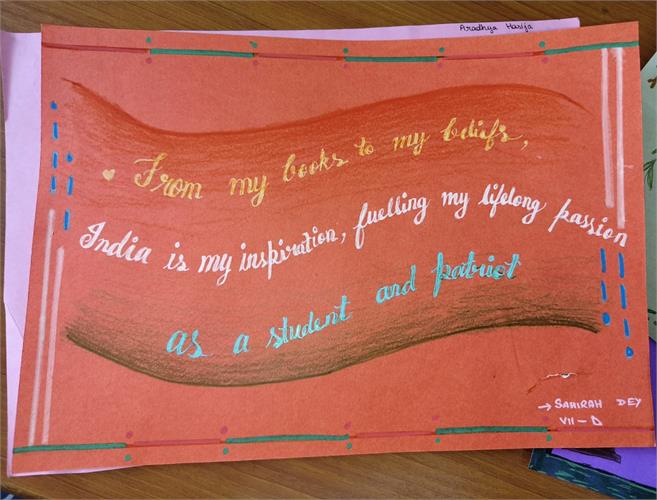 Aradhya Harija
From my books to my beliefs,
India is my inspiration, fuelling my lifelong passion
as a student and patriot
→ SAHIRAH DEY
VII - D